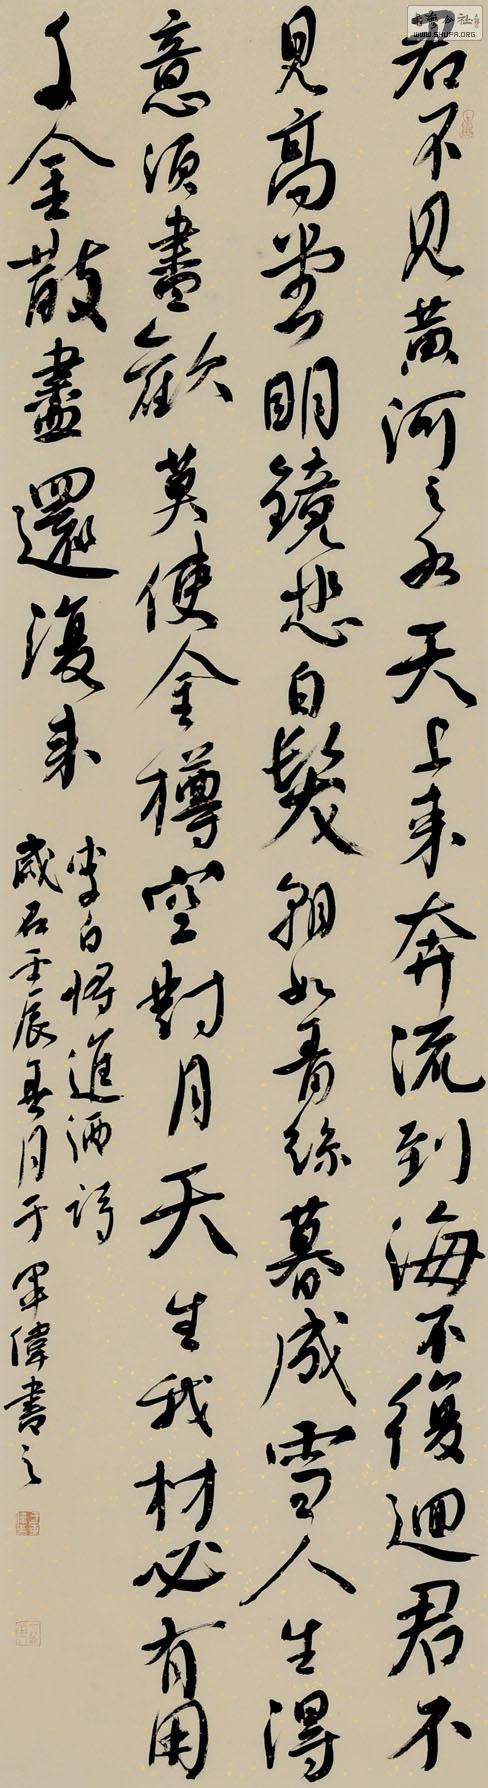 君不見黃河之水天上來奔流到海不復迴君不
見高堂明鏡悲白髮朝如青絲暮成雪人生得
意須盡歡莫使金樽空對月天生我材必有用
千金散盡還復來
李白將進酒詩
歲在壬辰春月于軍偉書之
书法公社
WWW.SHUFA.ORG